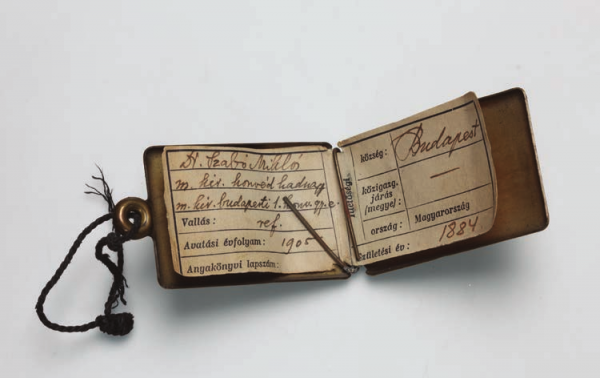 Dr. Szabó Miklós
m. kir. honvéd hadnagy
m. kir. budapesti 1. honv. gy. e.
Vallás: ref.
Avatási évfolyam: 1905
Anyakönyvi lapszám:
község: Budapest
közigazg. járás (megye): —
ország: Magyarország
Születési év: 1884